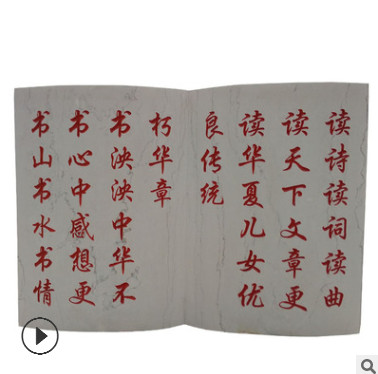 读诗读词读曲
读天下文章更
读华夏儿女优
良传统
书山书水书情
书心中感想更
书泱泱中华不
朽华章